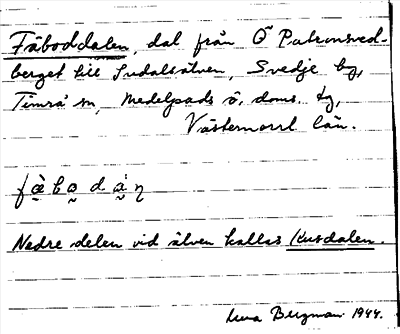 Fäboddalen, dal från Ö Patronsved-
berget till Indalsälven, Svedje by,
Timrå sn, Medelpads ö. doms. tg,
Västernorrl län.
Nedre delen vid älven kallas Kusdalen.
Bergman 1944.